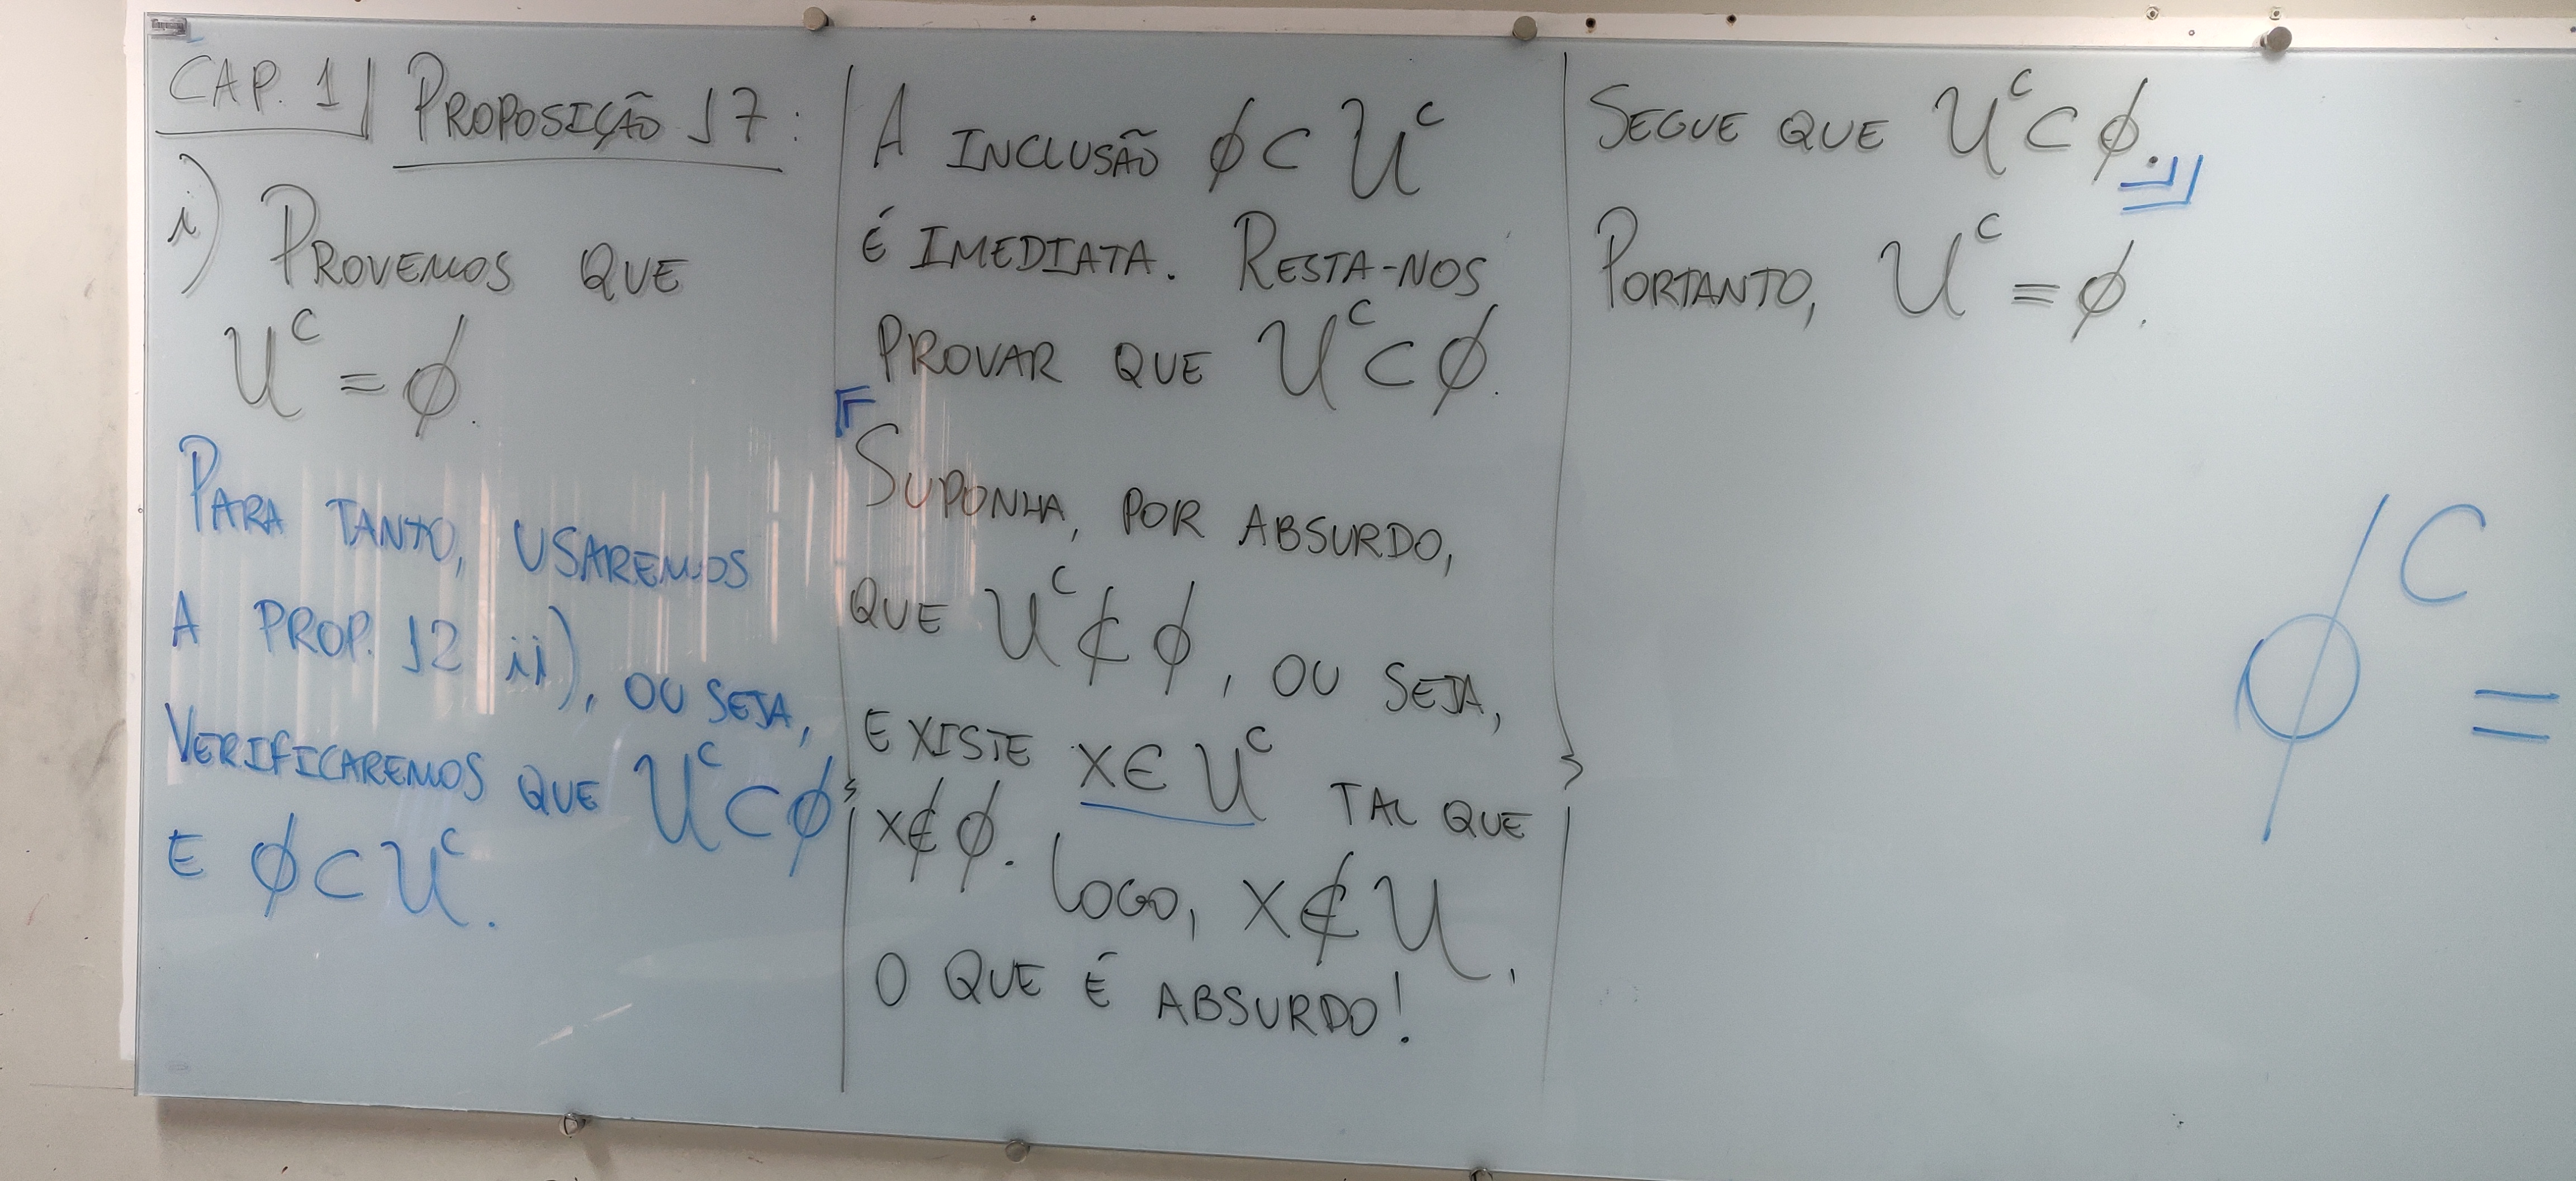 CAP. 1 PROPOSIÇÃO 17:
i) PROVEMOS QUE
U^C = ∅.
PARA TANTO, USAREMOS
A PROP. 12 ii), OU SEJA,
VERIFICAREMOS QUE U^C ⊂ ∅
E ∅ ⊂ U^C.
A INCLUSÃO ∅ ⊂ U^C
É IMEDIATA. RESTA-NOS
PROVAR QUE U^C ⊂ ∅.
SUPONHA, POR ABSURDO,
QUE U^C ⊄ ∅, OU SEJA,
EXISTE X ∈ U^C TAL QUE
X ∉ ∅. LOGO, X ∉ U,
O QUE É ABSURDO!
SEGUE QUE U^C ⊂ ∅.
PORTANTO, U^C = ∅.
∅^C =